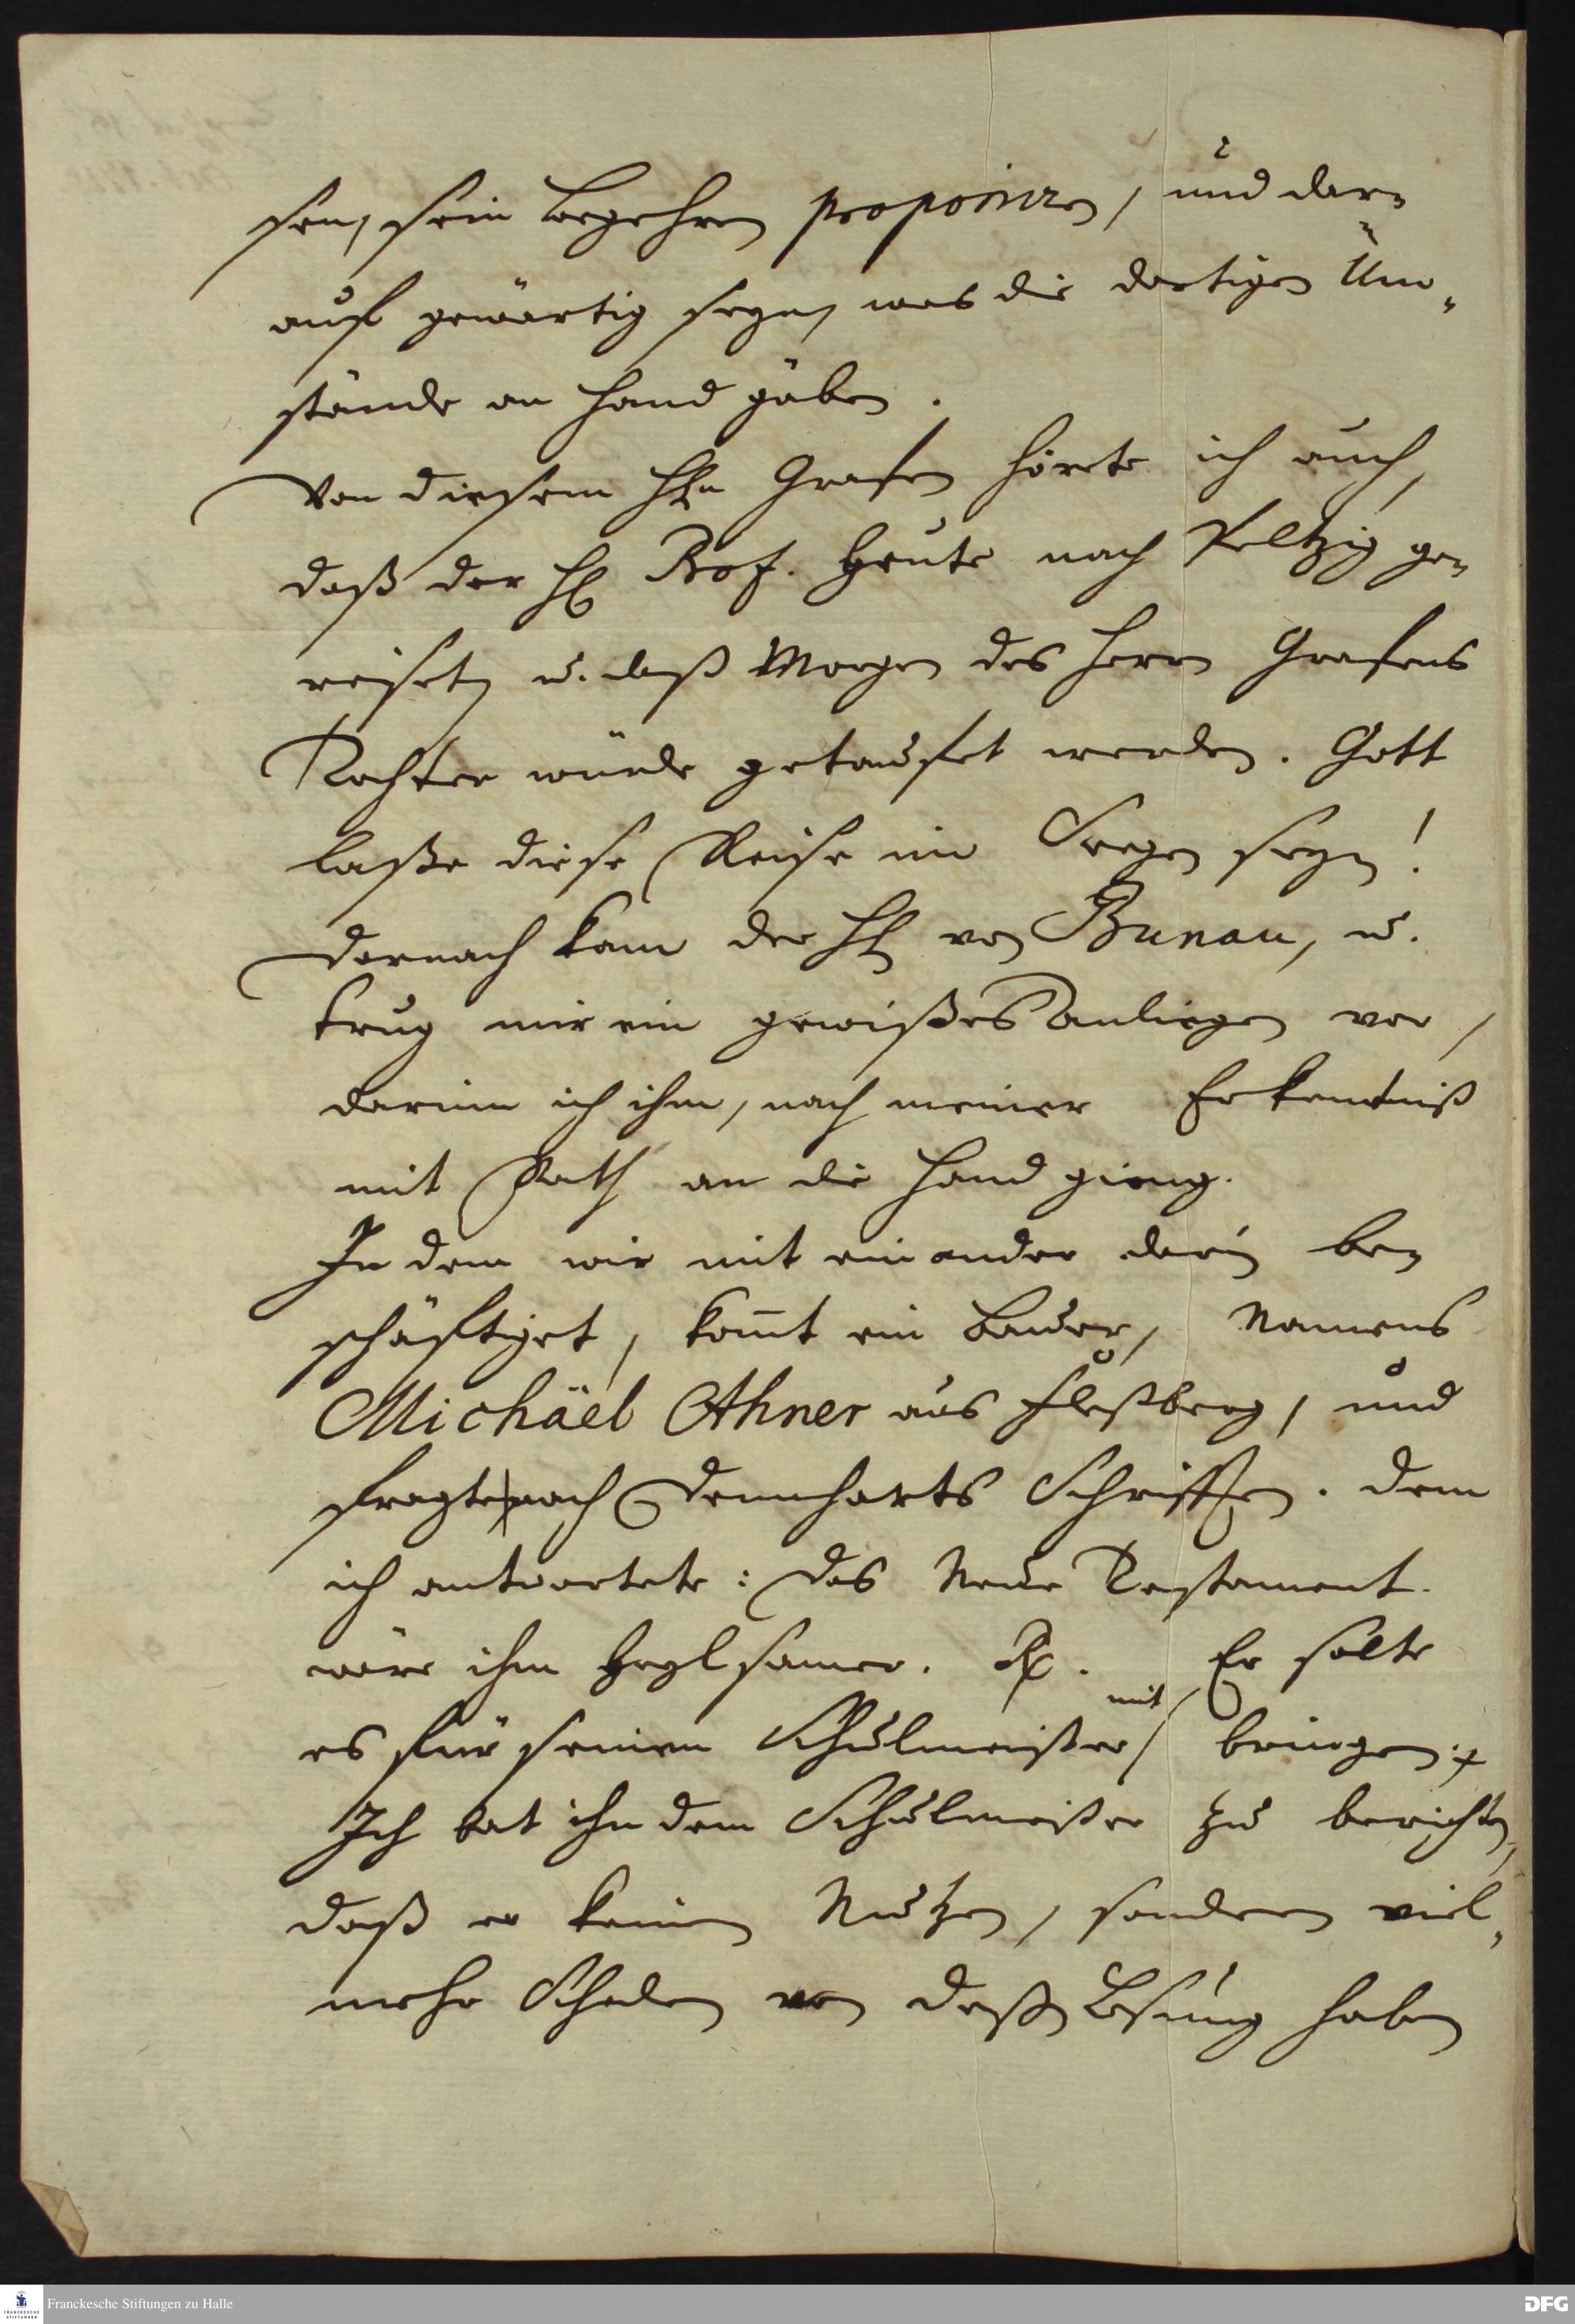 sen, sein begehren proponiren, und dar-
auf gewärtig seyn, was die dortigen Um-
stände an Hand gäben.
Von diesem Hrn Grafen hörete ich auch,
daß der H. Prof. heute nach Peltzig ge-
reiset, u. daß Morgen des Herrn Grafens
Tochter würde getaufet werden. Gott
laße diese Reise im Seegen seyn!
Darnach kam der H. von Bunau, u.
trug mir ein gewißes Anliegen vor,
darinn ich ihm, nach meiner Erkentniß
mit Rath an die Hand gieng.
In dem wir mit einander darin be-
schäftiget, komt ein Bauer, Namens
Michäel Ahner aus Fleßberg, und
fragte nach Dennharts Schriften. Dem
ich antwortete: Das Neue Testament
wäre ihm heylsamer. Rx. Er solte
es für seinen Schulmeister mit bringen.
Ich bat ihn dem Schulmeister zu berichten,
daß er keinen Nutzen, sondern viel-
mehr Schaden von deßen Lesung haben
Franckesche Stiftungen zu Halle
DFG